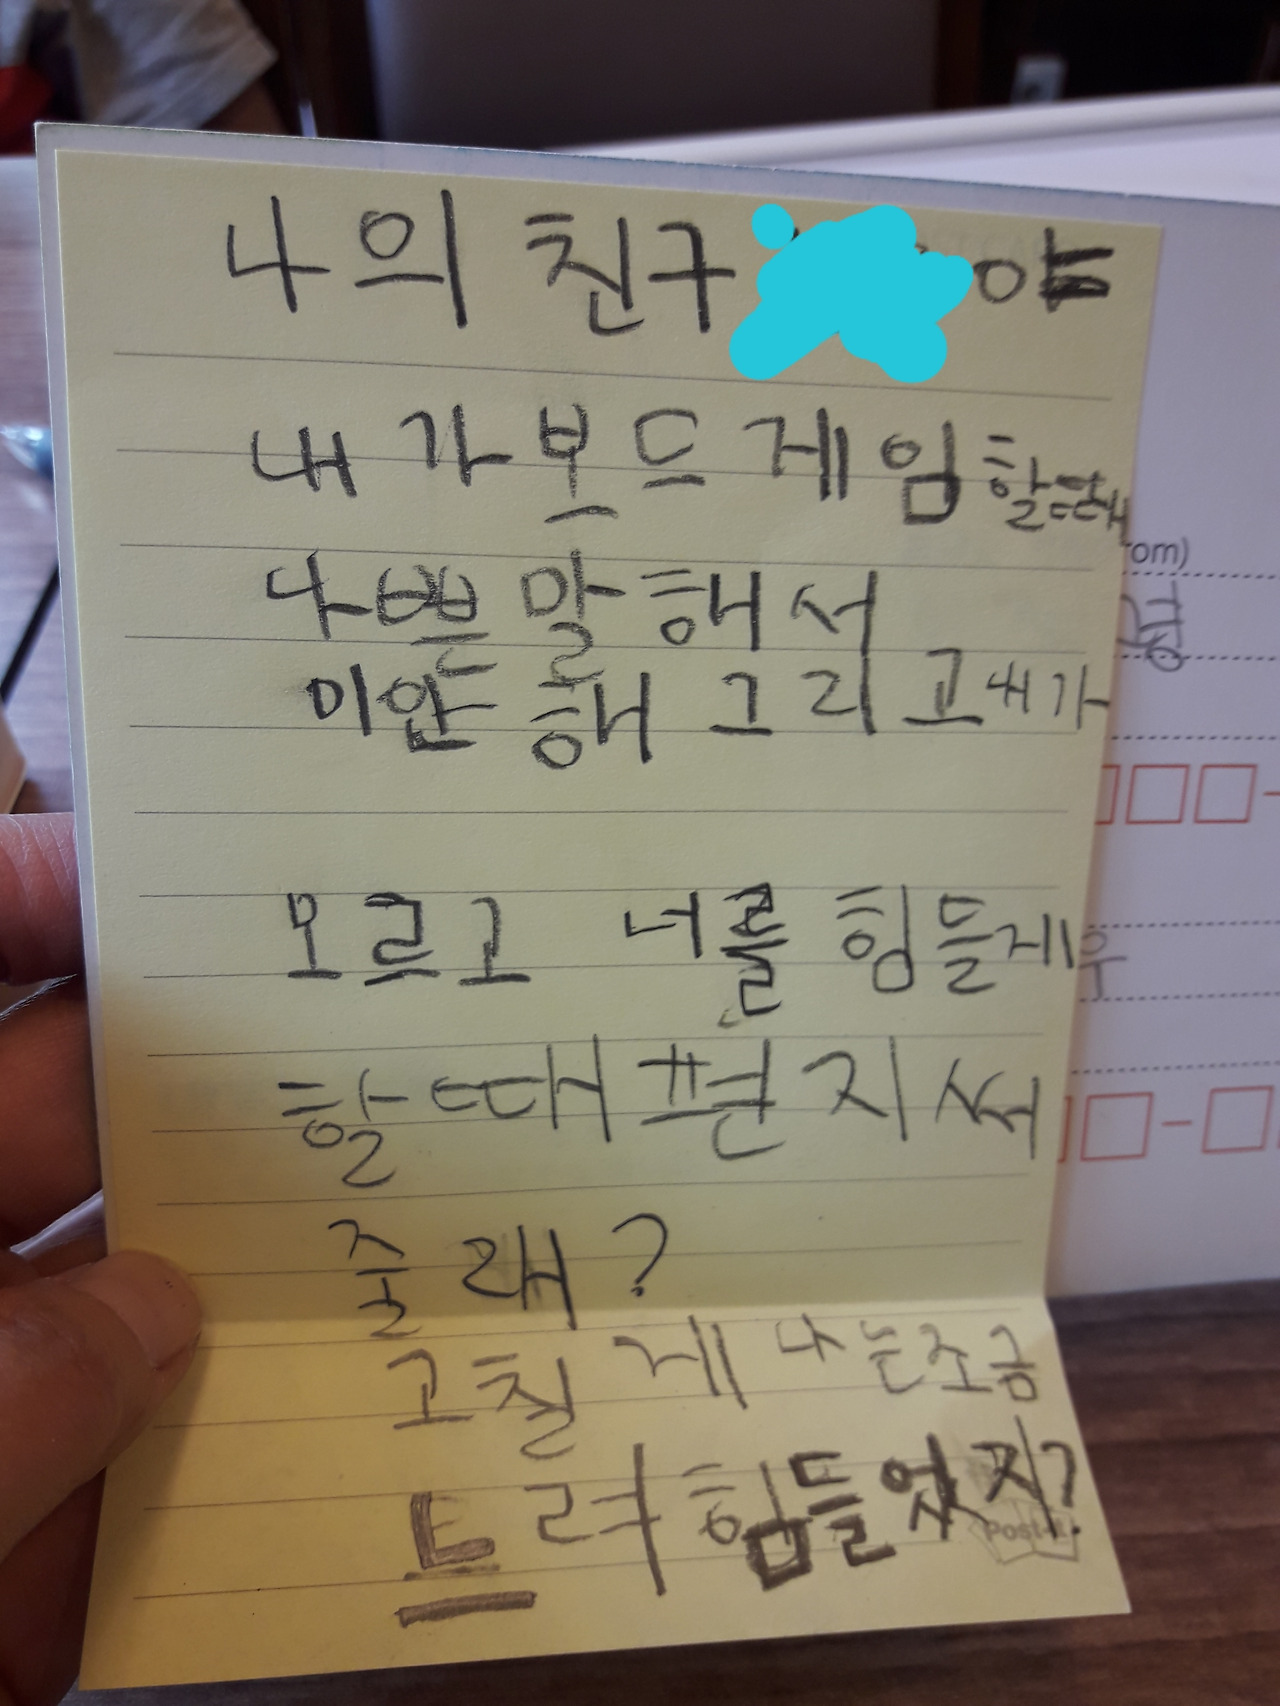 나의 친구 야
내가 보드게임할때
나쁜말해서
미안해 그리고 내가
모르고 너를 힘들게
할때 편지써
줄래?
고칠게 나는 조금
트려 힘들었지?
Post-it
om)